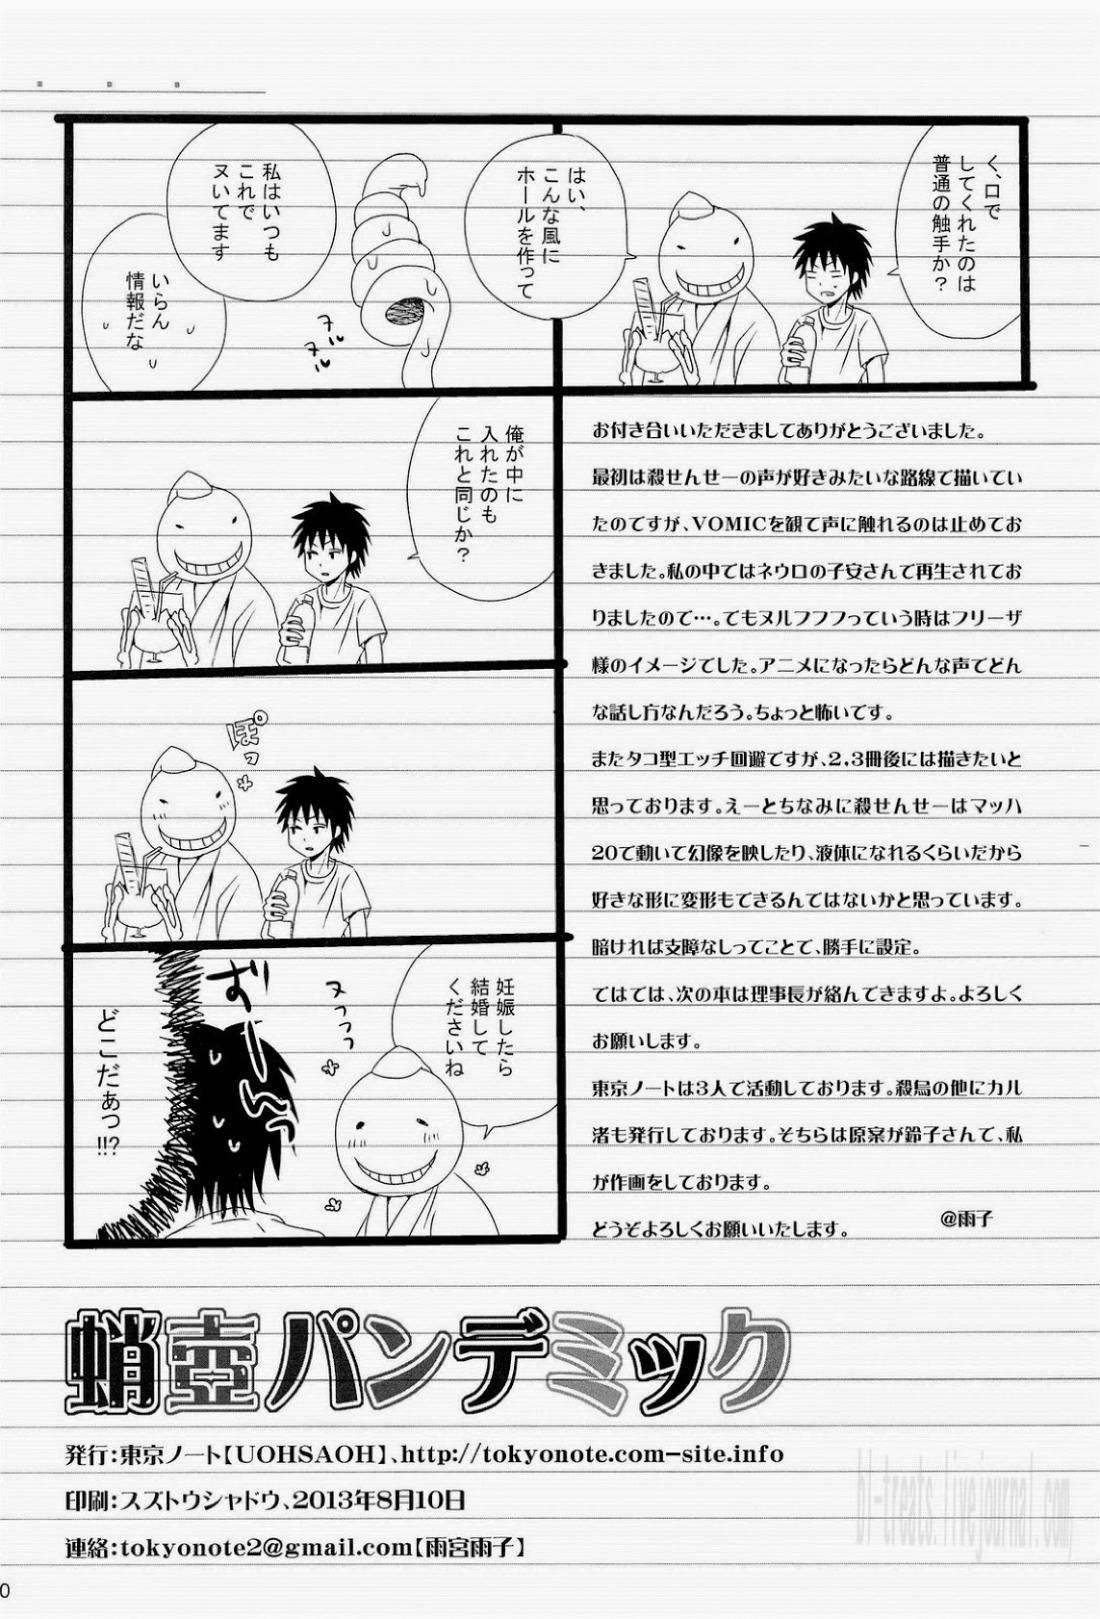 く、口で
してくれたのは
普通の触手か?
はい、
こんな風に
ホールを作って
私はいつも
これで
ヌいてます
ヌル
ヌル
いらん
情報だな
俺が中に
入れたのも
これと同じか?
ぽっ
妊娠したら
結婚して
くださいね
ヌっっっ
おーーんっ
どこだぁっ!!?
お付き合いいただきましてありがとうございました。
最初は殺せんせーの声が好きみたいな路線で描いてい
たのですが、VOMICを観て声に触れるのは止めてお
きました。私の中ではネウロの子安さんで再生されてお
りましたので…。でもヌルフフフっていう時はフリーザ
様のイメージでした。アニメになったらどんな声でどん
な話し方なんだろう。ちょっと怖いです。
またタコ型エッチ回避ですが、2,3冊後には描きたいと
思っております。えーとちなみに殺せんせーはマッハ
20で動いて幻像を映したり、液体になれるくらいだから
好きな形に変形もできるんではないかと思っています。
暗ければ支障なしってことで、勝手に設定。
てはては、次の本は理事長が絡んできますよ。よろしく
お願いします。
東京ノートは3人で活動しております。殺烏の他にカル
渚も発行しております。そちらは原案が鈴子さんて、私
が作画をしております。
どうぞよろしくお願いいたします。
@雨子
蛸壺パンデミック
発行:東京ノート【UOHSAOH】、http://tokyonote.com-site.info
印刷:スズトウシャドウ、2013年8月10日
連絡:tokyonote2@gmail.com【雨宮雨子】
bl-treats.livejournal.com
0